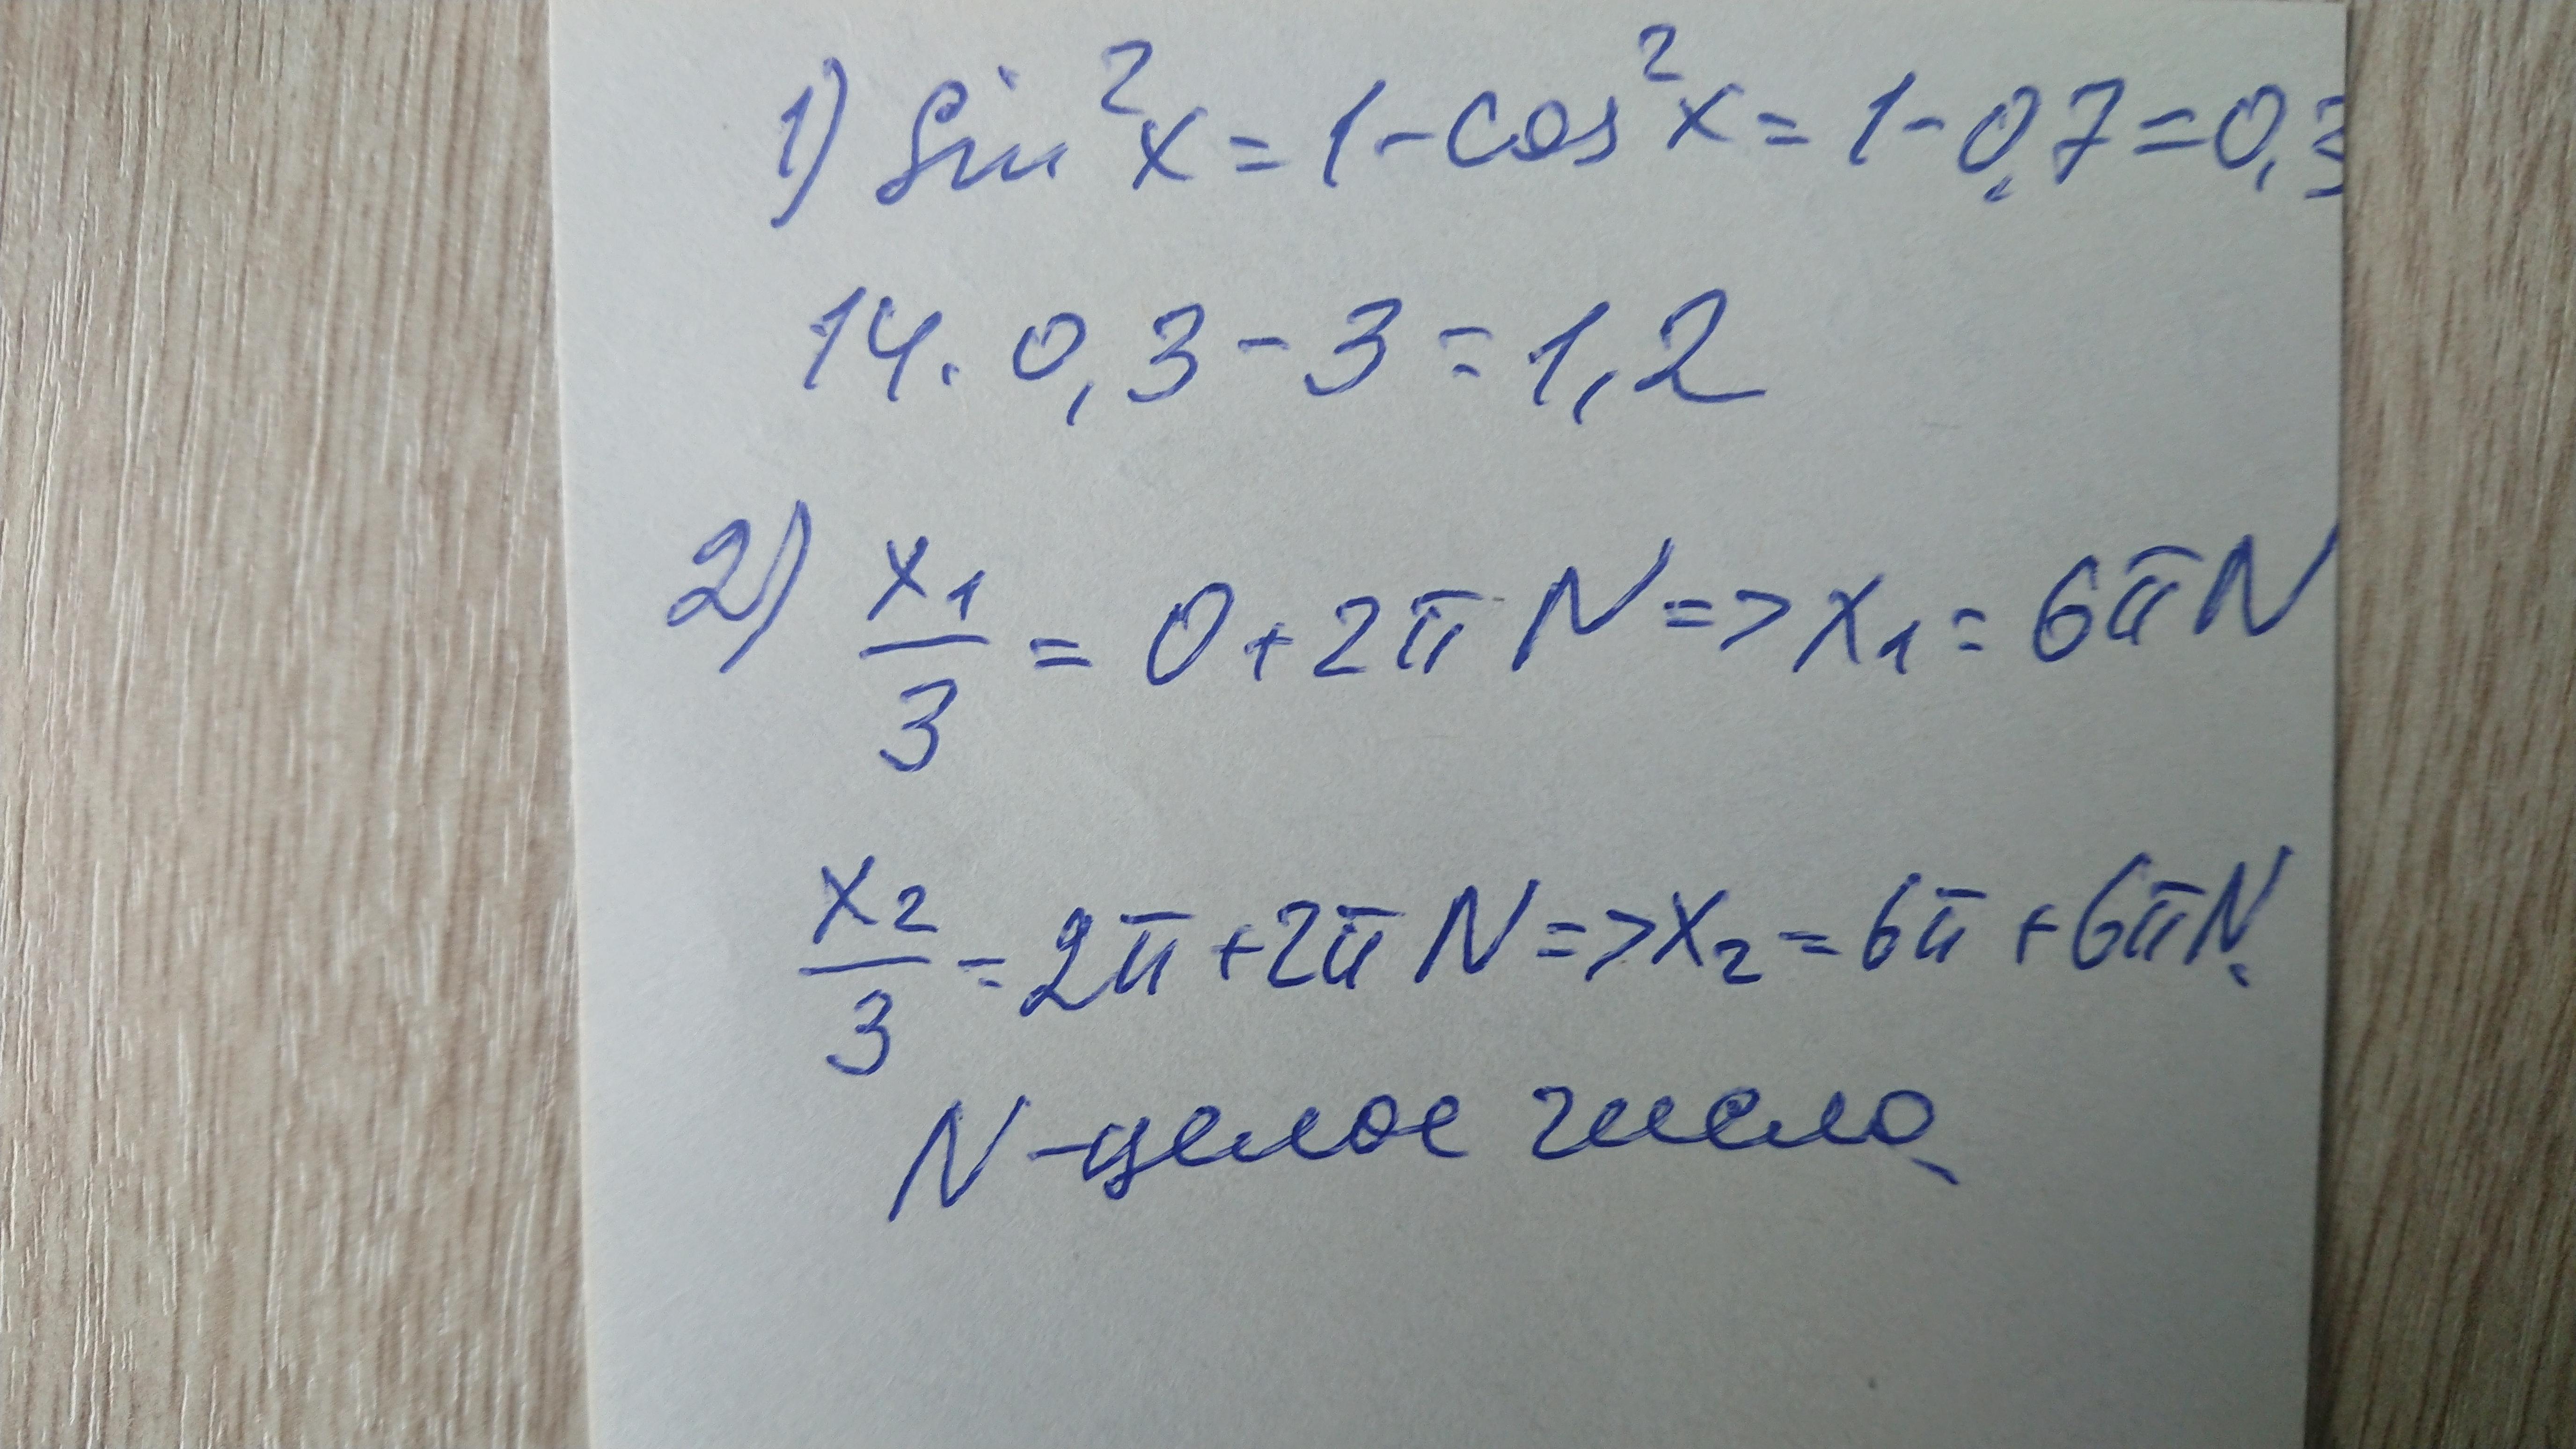 1) sin²x = 1 - cos²x = 1 - 0,7 = 0,3
14 · 0,3 - 3 = 1,2
2) x₁/3 = 0 + 2π N => x₁ = 6πN
x₂/3 = 2π + 2π N => x₂ = 6π + 6πN.
N - целое число